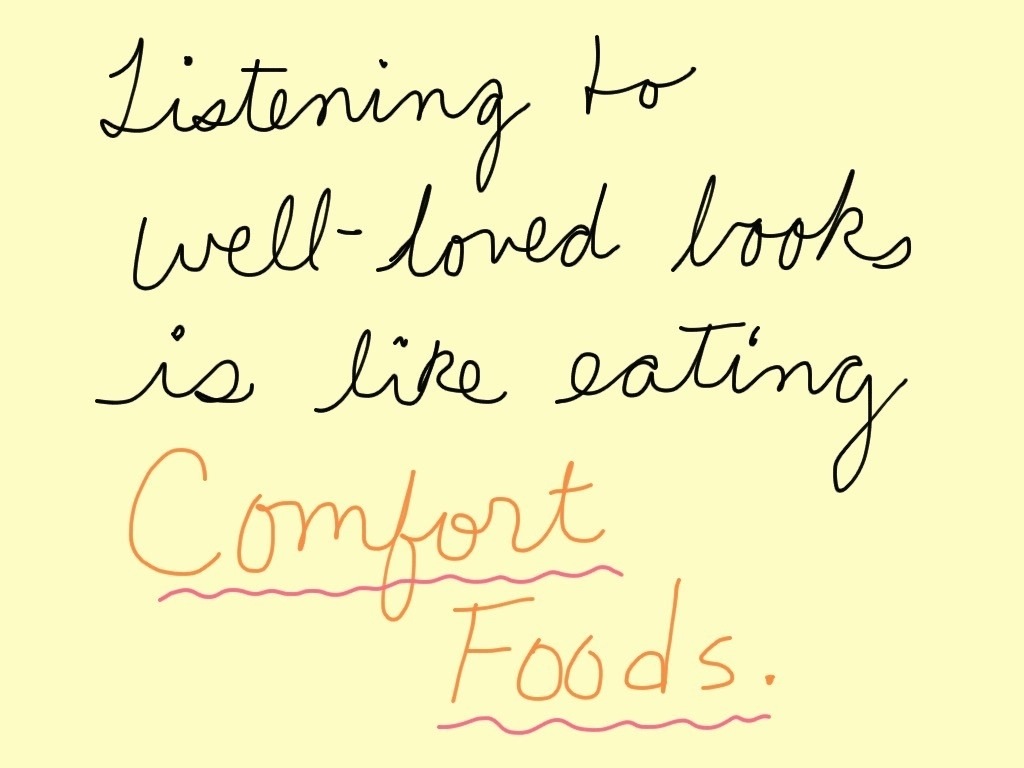 Listening to
well-loved books
is like eating
Comfort
Foods.